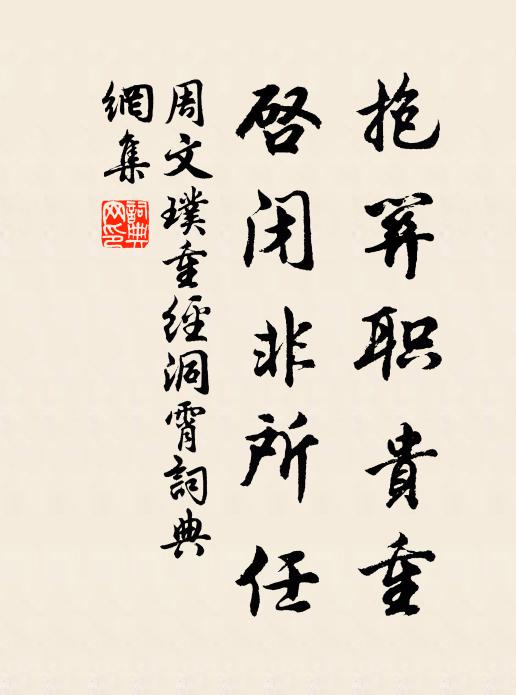 抱关职貴重
啓闭非所任
周文璞重經洞霄詞典
網集
詞典
网印